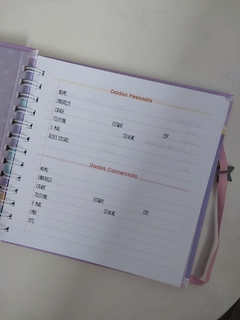 Dados Pessoais
NOME:
ENDEREÇO:
CIDADE: ESTADO: CEP:
TELEFONE: CELULAR:
E-MAIL:
REDES SOCIAIS:
Dados Comerciais
NOME:
ENDEREÇO:
CIDADE: ESTADO: CEP:
TELEFONE: CELULAR:
E-MAIL:
CNPJ:
SITE: